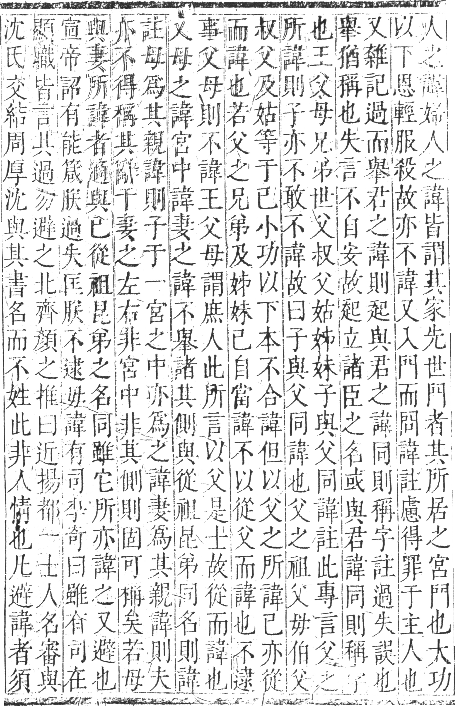 人之諱婦人之諱皆謂其家先世門者其所居之宮門也大功
以下恩輕服殺故亦不諱又入門而問諱註慮得罪于主人也
又雜記過而舉君之諱則起與君之諱同則稱字註過失誤也
舉猶稱也失言不自安故起立諸臣之名或與君諱同則稱字
也王父母兄弟世父叔父姑姊妹子與父同諱註此專言父之
所諱則子亦不敢不諱故曰子與父同諱也父之祖父母伯父
叔父及姑等于己小功以下本不合諱但以父之所諱己亦從
而諱也若父之兄弟及姊妹己自當諱不以從父而諱也不逮
事父母則不諱王父母謂庶人此所言以父是士故從而諱也
又母之諱宮中諱妻之諱不舉諸其側與從祖昆弟同名則諱
註母為其親諱則子于一宮之中亦為之諱妻為其親諱則夫
亦不得稱其辭于妻之左右非宮中非其側則固可稱矣若母
與妻所諱者適與己從祖昆弟之名同雖它所亦諱之又避也
宣帝詔有能箴朕過失匡朕不逮毋諱有司李奇曰雖有司在
顯職皆言其過勿避之北齊顏之推曰近揚都一士人名審與
沈氏交結周厚沈與其書名而不姓此非人情也凡避諱者須